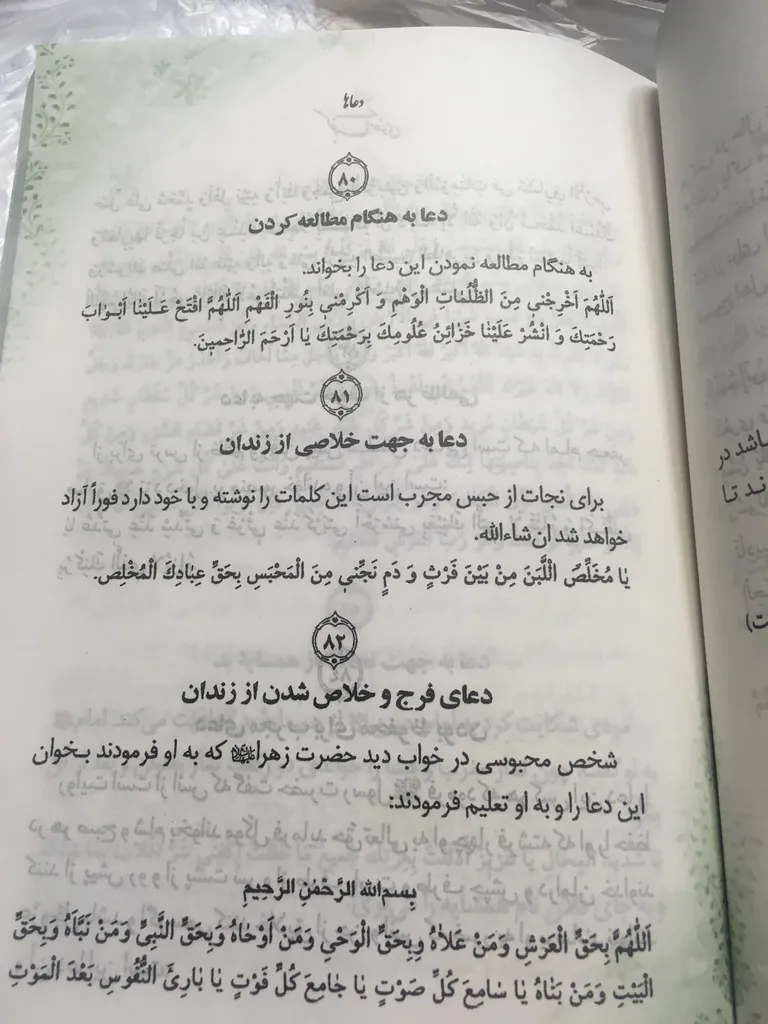 دعاها
۸۰
دعا به هنگام مطالعه کردن
به هنگام مطالعه نمودن این دعا را بخواند.
اَللّٰهُمَ اَخْرِجْنی مِنَ الظُّلُمٰاتِ الْوَهْمِ وَ اَکْرِمْنی بِنُورِ الْفَهْمِ اَللّٰهُمَّ افْتَحْ عَلَیْنٰا اَبْوابَ
رَحْمَتِكَ وَ انْشُرْ عَلَیْنٰا خَزٰائِنُ عُلُومِكَ بِرَحْمَتِكَ یٰا اَرْحَمَ الرّٰاحِمینَ.
۸۱
دعا به جهت خلاصی از زندان
برای نجات از حبس مجرب است این کلمات را نوشته و با خود دارد فوراً آزاد
خواهد شد ان شاءالله.
یٰا مُخَلِّصُ الْلَّبَنَ مِنْ بَیْنَ فَرْثٍ وَ دَمٍ نَجِّنی مِنَ الْمَحْبَسِ بِحَقِّ عِبٰادِكَ الْمُخْلِصِ.
۸۲
دعای فرج و خلاص شدن از زندان
شخص محبوسی در خواب دید حضرت زهرا که به او فرمودند بخوان
این دعا را و به او تعلیم فرمودند:
بِسمِ الله الرَّحْمٰنِ الرَّحِیمِ
اَللّٰهُمَّ بِحَقِّ الْعَرْشِ وَمَنْ عَلاٰهُ وَبِحَقِّ الْوَحْیِ وَمَنْ اَوْحٰاهُ وَبِحَقِّ النَّبِیِّ وَمَنْ نَبَّاَهُ وَبِحَقِّ
الْبَیْتِ وَمَنْ بَنٰاهُ یٰا سٰامِعَ کُلِّ صَوْتٍ یٰا جٰامِعَ کُلِّ فَوْتٍ یٰا بٰارِئَ النُّفُوسِ بَعْدَ الْمَوْتِ
باشد در
ند تا